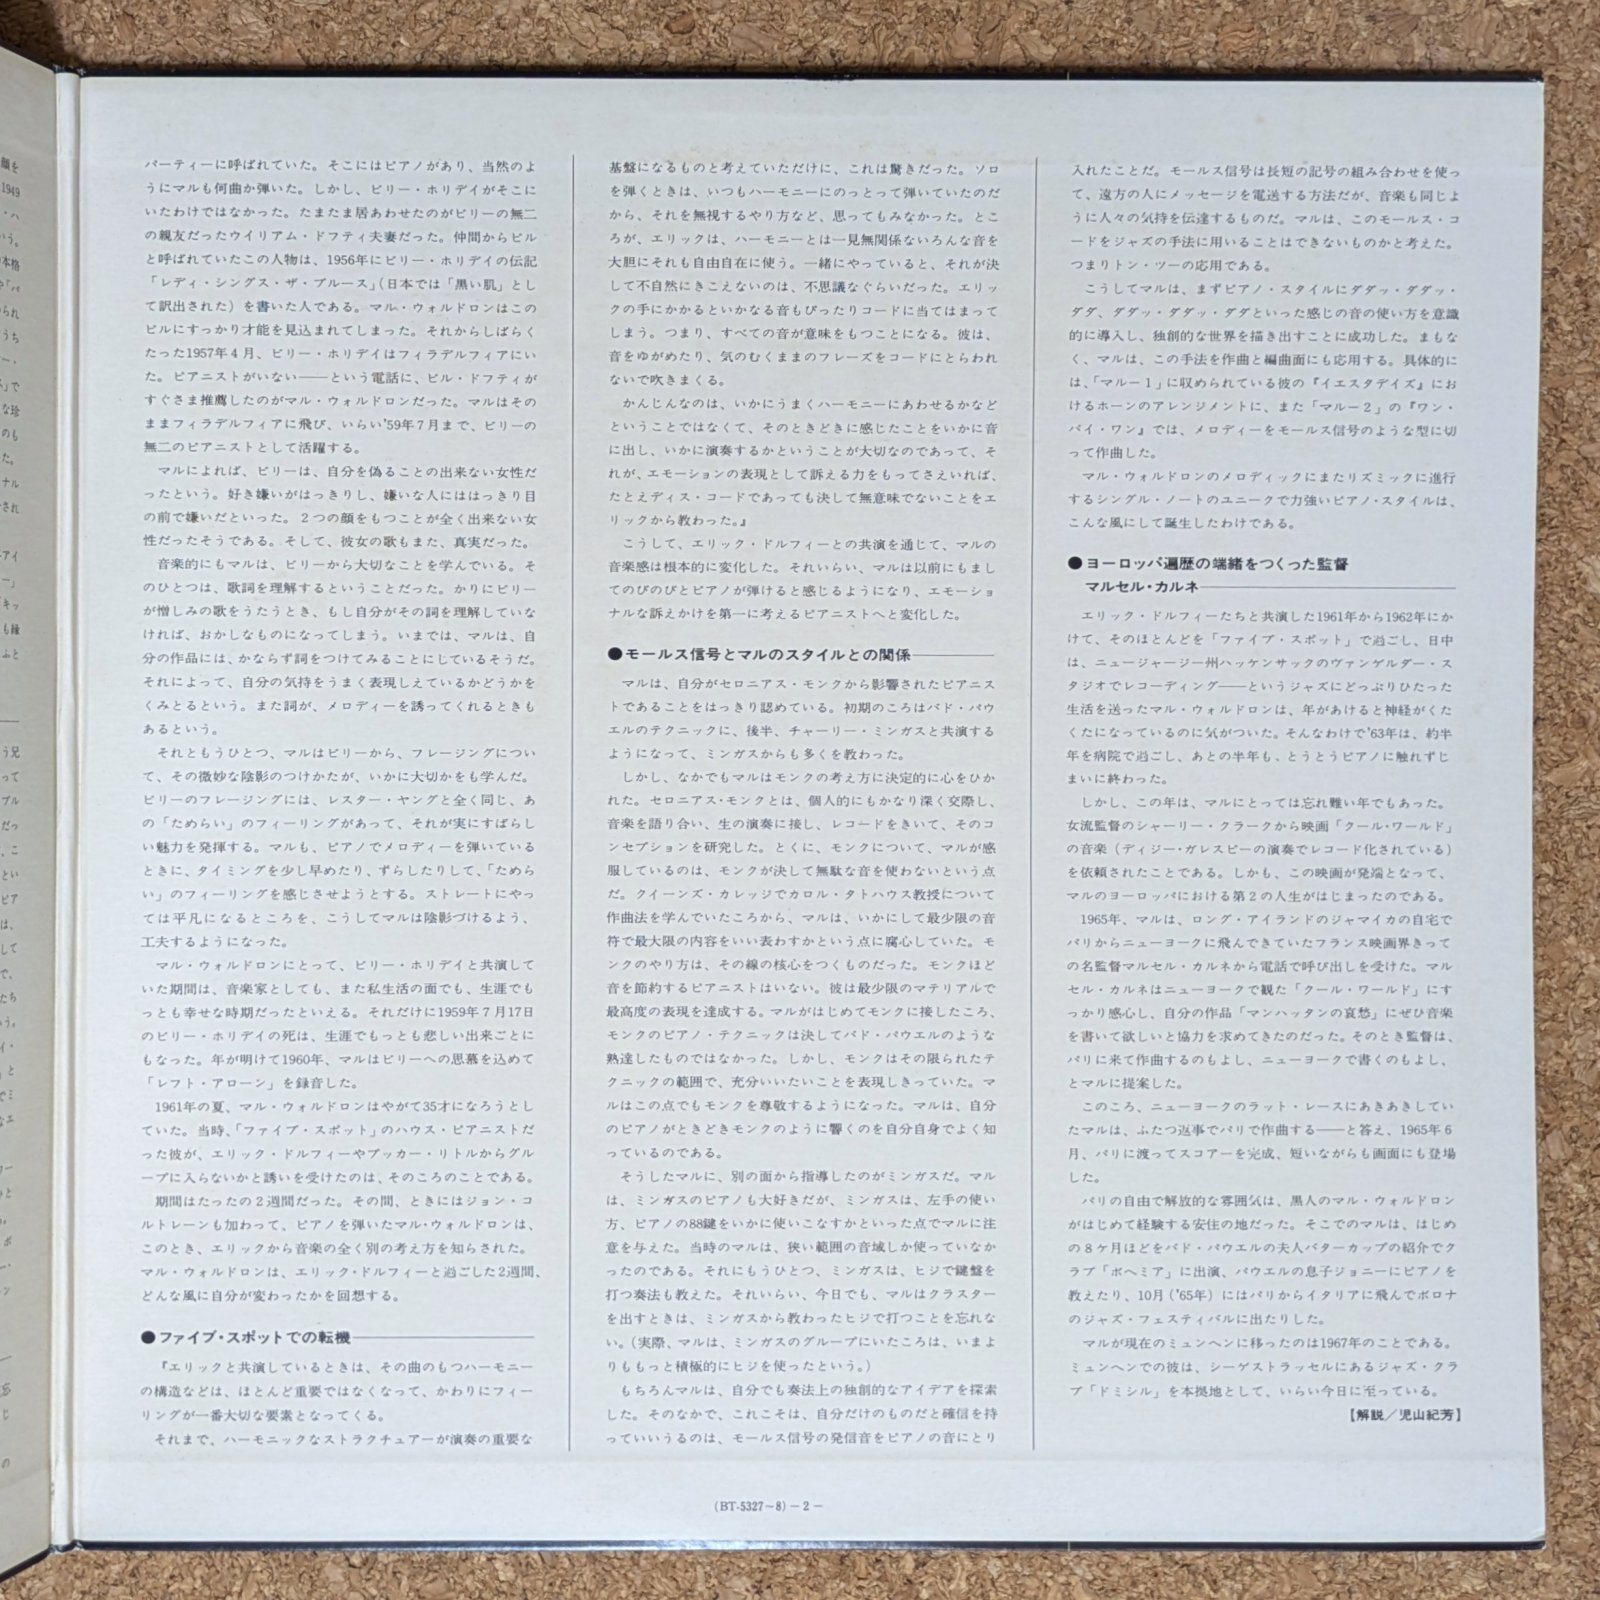 パーティーに呼ばれていた。そこにはピアノがあり、当然のよ
うにマルも何曲か弾いた。しかし、ビリー・ホリデイがそこに
いたわけではなかった。たまたま居あわせたのがビリーの無二
の親友だったウイリアム・ドフティ夫妻だった。仲間からビル
と呼ばれていたこの人物は、1956年にビリー・ホリデイの伝記
「レディ・シングス・ザ・ブルース」（日本では「黒い肌」とし
て訳出された）を書いた人である。マル・ウォルドロンはこの
ビルにすっかり才能を見込まれてしまった。それからしばらく
たった1957年4月、ビリー・ホリデイはフィラデルフィアにい
た。ピアニストがいない――という電話に、ビル・ドフティが
すぐさま推薦したのがマル・ウォルドロンだった。マルはその
ままフィラデルフィアに飛び、いらい'59年7月まで、ビリーの
無二のピアニストとして活躍する。
マルによれば、ビリーは、自分を偽ることの出来ない女性だ
ったという。好き嫌いがはっきりし、嫌いな人にははっきり目
の前で嫌いだといった。2つの顔をもつことが全く出来ない女
性だったそうである。そして、彼女の歌もまた、真実だった。
音楽的にもマルは、ビリーから大切なことを学んでいる。そ
のひとつは、歌詞を理解するということだった。かりにビリー
が憎しみの歌をうたうとき、もし自分がその詞を理解していな
ければ、おかしなものになってしまう。いまでは、マルは、自
分の作品には、かならず詞をつけてみることにしているそうだ。
それによって、自分の気持をうまく表現しえているかどうかを
くみとるという。また詞が、メロディーを誘ってくれるときも
あるという。
それともうひとつ、マルはビリーから、フレージングについ
て、その微妙な陰影のつけかたが、いかに大切かをも学んだ。
ビリーのフレージングには、レスター・ヤングと全く同じ、あ
の「ためらい」のフィーリングがあって、それが実にすばらし
い魅力を発揮する。マルも、ピアノでメロディーを弾いている
ときに、タイミングを少し早めたり、ずらしたりして、「ためら
い」のフィーリングを感じさせようとする。ストレートにやっ
ては平凡になるところを、こうしてマルは陰影づけるよう、
工夫するようになった。
マル・ウォルドロンにとって、ビリー・ホリデイと共演して
いた期間は、音楽家としても、また私生活の面でも、生涯でも
っとも幸せな時期だったといえる。それだけに1959年7月17日
のビリー・ホリデイの死は、生涯でもっとも悲しい出来ごとに
もなった。年が明けて1960年、マルはビリーへの思慕を込めて
「レフト・アローン」を録音した。
1961年の夏、マル・ウォルドロンはやがて35才になろうとし
ていた。当時、「ファイブ・スポット」のハウス・ピアニストだ
った彼が、エリック・ドルフィーやブッカー・リトルからグル
ープに入らないかと誘いを受けたのは、そのころのことである。
期間はたったの2週間だった。その間、ときにはジョン・コ
ルトレーンも加わって、ピアノを弾いたマル・ウォルドロンは、
このとき、エリックから音楽の全く別の考え方を知らされた。
マル・ウォルドロンは、エリック・ドルフィーと過ごした2週間、
どんな風に自分が変わったかを回想する。
●ファイブ・スポットでの転機
『エリックと共演しているときは、その曲のもつハーモニー
の構造などは、ほとんど重要ではなくなって、かわりにフィー
リングが一番大切な要素となってくる。
それまで、ハーモニックなストラクチュアーが演奏の重要な
基盤になるものと考えていただけに、これは驚きだった。ソロ
を弾くときは、いつもハーモニーにのっとって弾いていたのだ
から、それを無視するやり方など、思ってもみなかった。とこ
ろが、エリックは、ハーモニーとは一見無関係ないろんな音を
大胆にそれも自由自在に使う。一緒にやっていると、それが決
して不自然にきこえないのは、不思議なぐらいだった。エリッ
クの手にかかるといかなる音もぴったりコードに当てはまって
しまう。つまり、すべての音が意味をもつことになる。彼は、
音をゆがめたり、気のむくままのフレーズをコードにとらわれ
ないで吹きまくる。
かんじんなのは、いかにうまくハーモニーにあわせるかなど
ということではなくて、そのときどきに感じたことをいかに音
に出し、いかに演奏するかということが大切なのであって、そ
れが、エモーションの表現として訴える力をもってさえいれば、
たとえディス・コードであっても決して無意味でないことをエ
リックから教わった。』
こうして、エリック・ドルフィーとの共演を通じて、マルの
音楽感は根本的に変化した。それいらい、マルは以前にもまし
てのびのびとピアノが弾けると感じるようになり、エモーショ
ナルな訴えかけを第一に考えるピアニストへと変化した。
●モールス信号とマルのスタイルとの関係
マルは、自分がセロニアス・モンクから影響されたピアニス
トであることをはっきり認めている。初期のころはバド・パウ
エルのテクニックに、後半、チャーリー・ミンガスと共演する
ようになって、ミンガスからも多くを教わった。
しかし、なかでもマルはモンクの考え方に決定的に心をひか
れた。セロニアス・モンクとは、個人的にもかなり深く交際し、
音楽を語り合い、生の演奏に接し、レコードをきいて、そのコ
ンセプションを研究した。とくに、モンクについて、マルが感
服しているのは、モンクが決して無駄な音を使わないという点
だ。クイーンズ・カレッジでカロル・タトハウス教授について
作曲法を学んでいたころから、マルは、いかにして最少限の音
符で最大限の内容をいい表わすかという点に腐心していた。モ
ンクのやり方は、その線の核心をつくものだった。モンクほど
音を節約するピアニストはいない。彼は最少限のマテリアルで
最高度の表現を達成する。マルがはじめてモンクに接したころ、
モンクのピアノ・テクニックは決してバド・パウエルのような
熟達したものではなかった。しかし、モンクはその限られたテ
クニックの範囲で、充分いいたいことを表現しきっていた。マ
ルはこの点でもモンクを尊敬するようになった。マルは、自分
のピアノがときどきモンクのように響くのを自分自身でよく知
っているのである。
そうしたマルに、別の面から指導したのがミンガスだ。マル
は、ミンガスのピアノも大好きだが、ミンガスは、左手の使い
方、ピアノの88鍵をいかに使いこなすかといった点でマルに注
意を与えた。当時のマルは、狭い範囲の音域しか使っていなか
ったのである。それにもうひとつ、ミンガスは、ヒジで鍵盤を
打つ奏法も教えた。それいらい、今日でも、マルはクラスター
を出すときは、ミンガスから教わったヒジで打つことを忘れな
い。（実際、マルは、ミンガスのグループにいたころは、いまよ
りももっと積極的にヒジを使ったという。）
もちろんマルは、自分でも奏法上の独創的なアイデアを探索
した。そのなかで、これこそは、自分だけのものだと確信を持
っていいうるのは、モールス信号の発信音をピアノの音にとり
入れたことだ。モールス信号は長短の記号の組み合わせを使っ
て、遠方の人にメッセージを電送する方法だが、音楽も同じよ
うに人々の気持を伝達するものだ。マルは、このモールス・コ
ードをジャズの手法に用いることはできないものかと考えた。
つまりトン・ツーの応用である。
こうしてマルは、まずピアノ・スタイルにダダッ・ダダッ・
ダダ、ダダッ・ダダッ・ダダといった感じの音の使い方を意識
的に導入し、独創的な世界を描き出すことに成功した。まもな
く、マルは、この手法を作曲と編曲面にも応用する。具体的に
は、「マルー1」に収められている彼の『イエスタデイズ』にお
けるホーンのアレンジメントに、また「マルー2」の『ワン・
バイ・ワン』では、メロディーをモールス信号のような型に切
って作曲した。
マル・ウォルドロンのメロディックにまたリズミックに進行
するシングル・ノートのユニークで力強いピアノ・スタイルは、
こんな風にして誕生したわけである。
●ヨーロッパ遍歴の端緒をつくった監督
マルセル・カルネ
エリック・ドルフィーたちと共演した1961年から1962年にか
けて、そのほとんどを「ファイブ・スポット」で過ごし、日中
は、ニュージャージー州ハッケンサックのヴァンゲルダー・ス
タジオでレコーディング――というジャズにどっぷりひたった
生活を送ったマル・ウォルドロンは、年があけると神経がくた
くたになっているのに気がついた。そんなわけで'63年は、約半
年を病院で過ごし、あとの半年も、とうとうピアノに触れずじ
まいに終わった。
しかし、この年は、マルにとっては忘れ難い年でもあった。
女流監督のシャーリー・クラークから映画「クール・ワールド」
の音楽（ディジー・ガレスピーの演奏でレコード化されている）
を依頼されたことである。しかも、この映画が発端となって、
マルのヨーロッパにおける第2の人生がはじまったのである。
1965年、マルは、ロング・アイランドのジャマイカの自宅で
パリからニューヨークに飛んできていたフランス映画界きって
の名監督マルセル・カルネから電話で呼び出しを受けた。マル
セル・カルネはニューヨークで観た「クール・ワールド」にす
っかり感心し、自分の作品「マンハッタンの哀愁」にぜひ音楽
を書いて欲しいと協力を求めてきたのだった。そのとき監督は、
パリに来て作曲するのもよし、ニューヨークで書くのもよし、
とマルに提案した。
このころ、ニューヨークのラット・レースにあきあきしてい
たマルは、ふたつ返事でパリで作曲する――と答え、1965年6
月、パリに渡ってスコアーを完成、短いながらも画面にも登場
した。
パリの自由で解放的な雰囲気は、黒人のマル・ウォルドロン
がはじめて経験する安住の地だった。そこでのマルは、はじめ
の8ヶ月ほどをバド・パウエルの夫人バターカップの紹介でク
ラブ「ボヘミア」に出演、パウエルの息子ジョニーにピアノを
教えたり、10月（'65年）にはパリからイタリアに飛んでボロナ
のジャズ・フェスティバルに出たりした。
マルが現在のミュンヘンに移ったのは1967年のことである。
ミュンヘンでの彼は、シーゲストラッセルにあるジャズ・クラ
ブ「ドミシル」を本拠地として、いらい今日に至っている。
【解説／児山紀芳】
(BT-5327~8)－2－